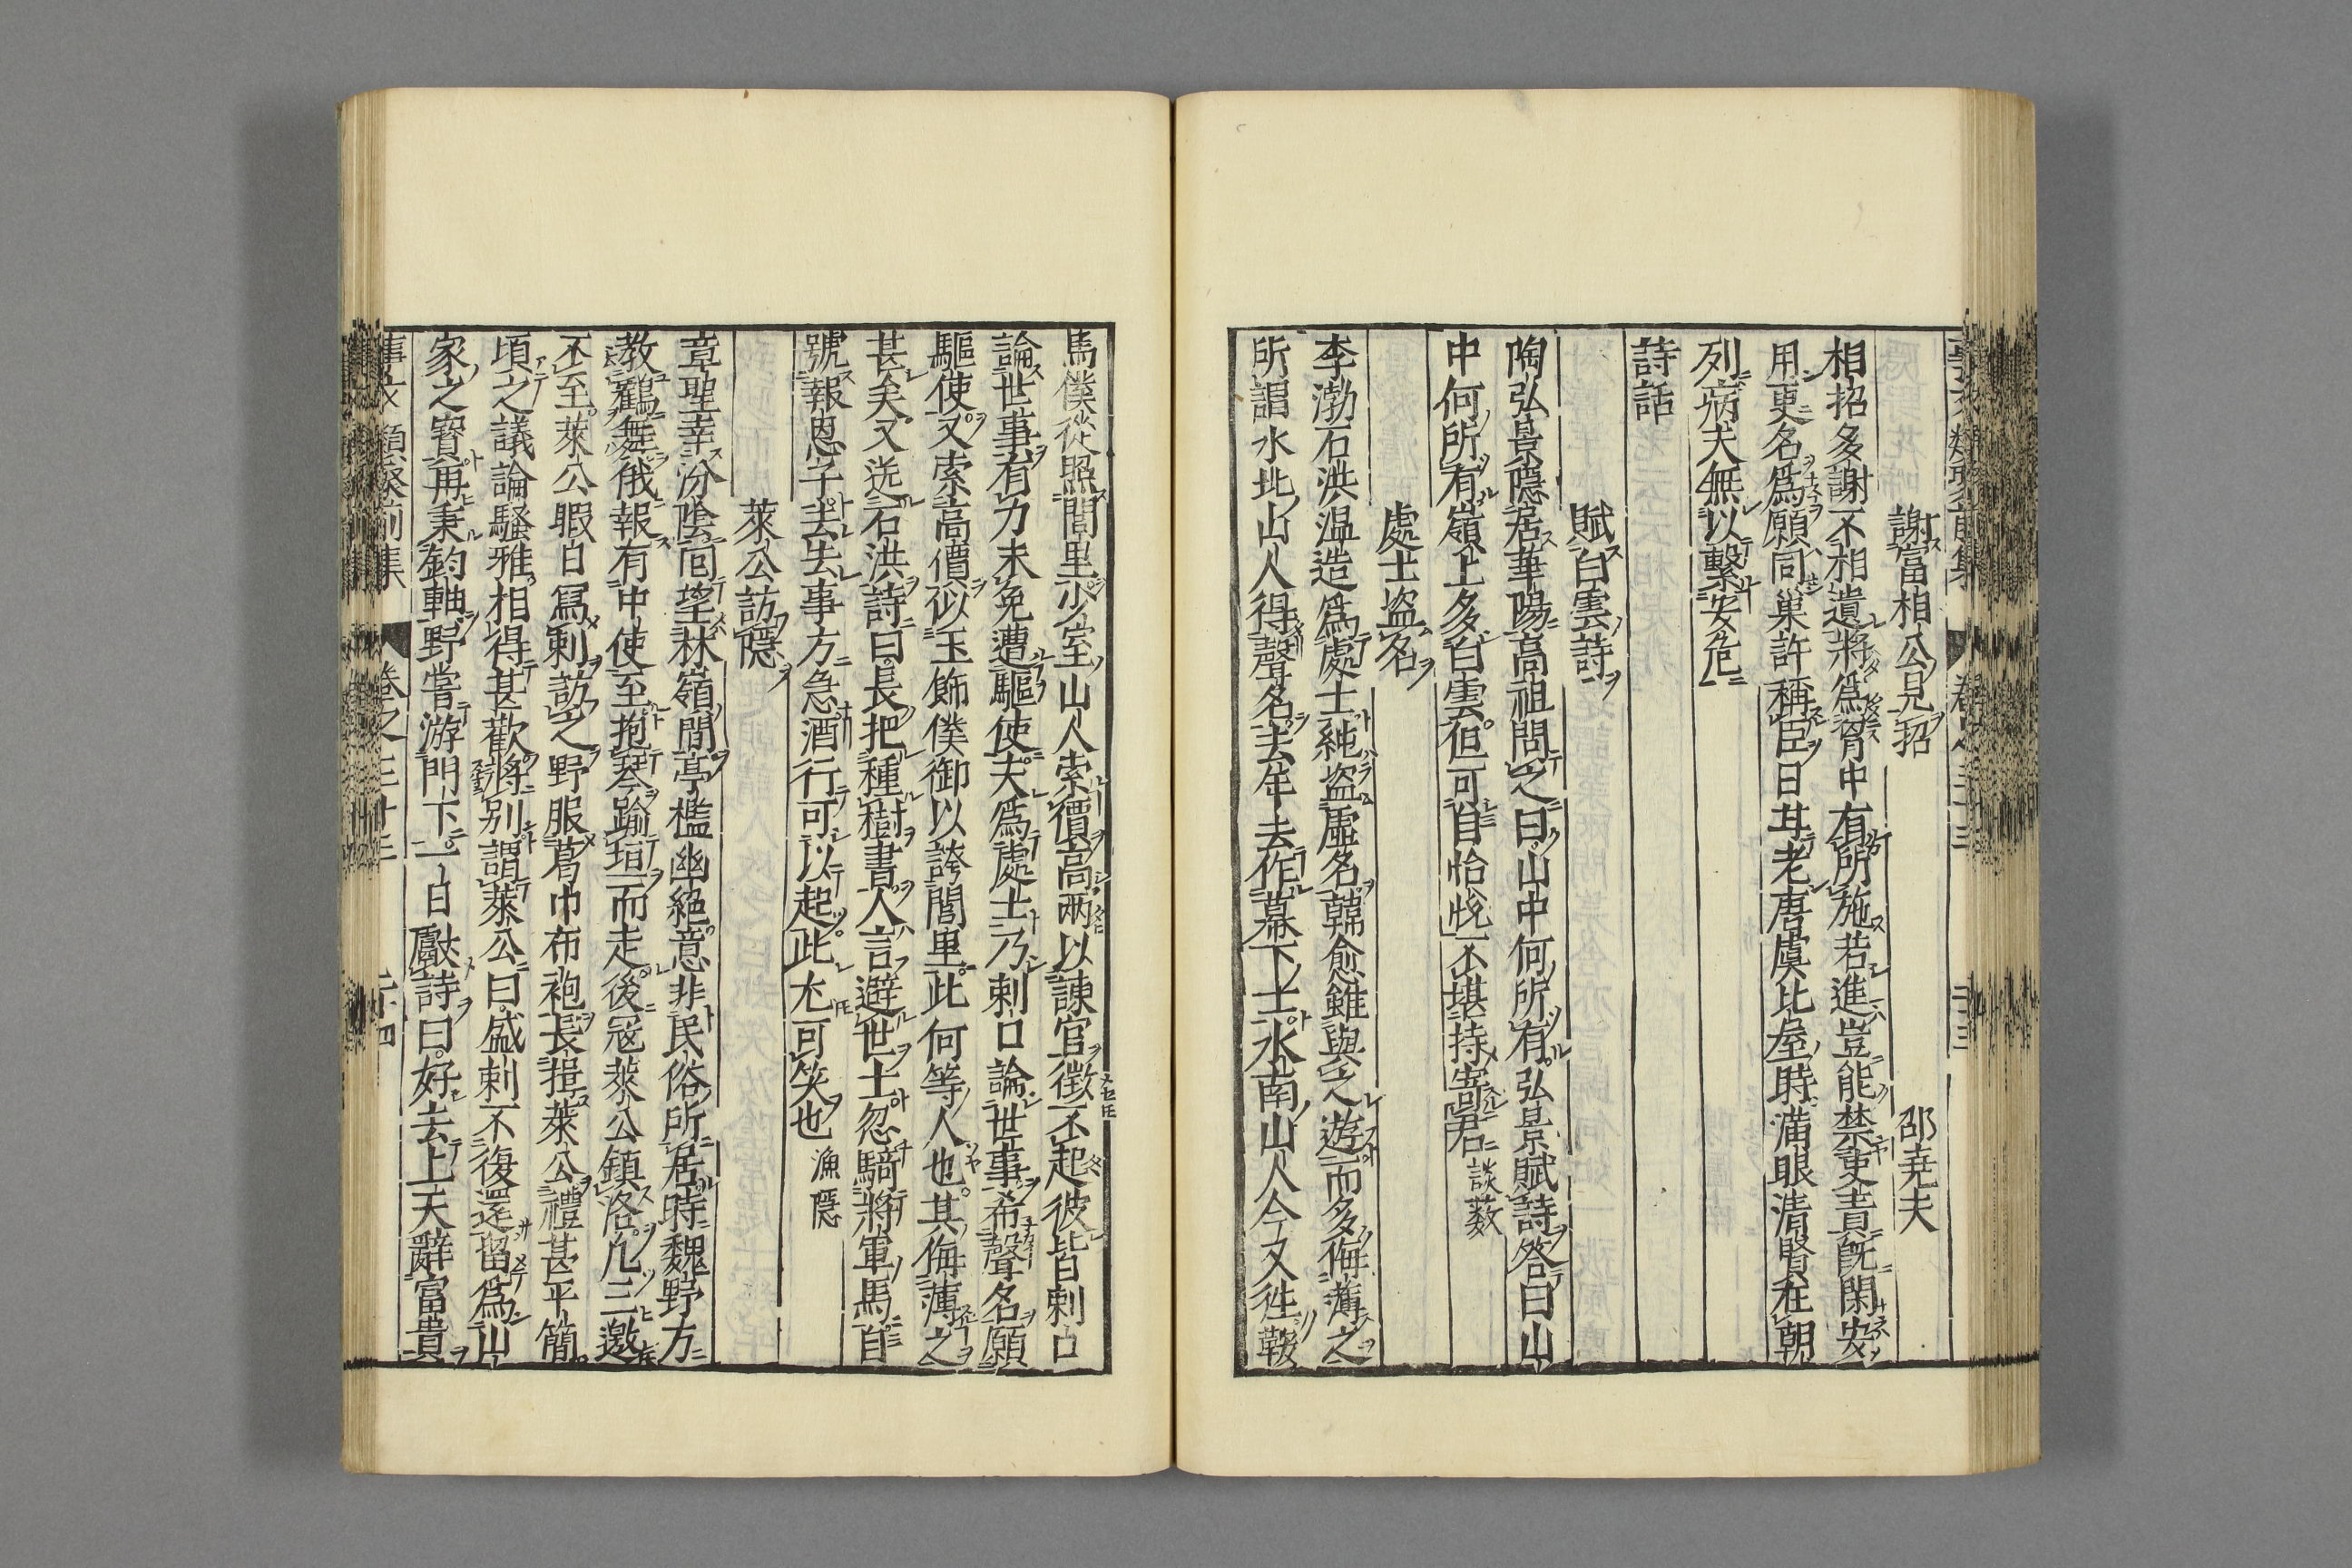 謝富相公見招　邵堯夫
相招多謝不相遺將爲胷中有所施若進豈能禁吏責旣閑安
用更名爲願同巢許稱臣日甘老唐虞比屋時滿眼清賢在朝
列病夫無以繫安危
詩話
賦白雲詩
陶弘景隱居華陽高祖問之曰山中何所有弘景賦詩答曰山
中何所有嶺上多白雲但可自怡悅不堪持寄君談藪
處士盜名
李渤石洪温造爲處士純盜虛名韓愈雖與之遊而多侮薄之
所謂水北山人得聲名去年去作幕下士水南山人今又徃鞍
馬僕從照閭里少室山人索價高兩以諫官徵不起彼皆刺口
論世事有力未免遭驅使夫爲處士乃刺口論世事希聲名願
驅使又索高價以玉飾僕御以誇閭里此何等人也其侮薄之
甚矣又送石洪詩曰長把種樹書人言避世士忽騎將軍馬自
號報恩子去去事方急酒行可以起此尤可笑也漁隱
萊公訪隱
章聖幸汾陰囘望林嶺間亭檻幽絕意非民俗所居時魏野方
教鶴舞俄報有中使至抱琴踰垣而走後冦萊公鎮洛凢三邀
不至萊公暇日寫刺訪之野服葛巾布袍長揖萊公禮甚平簡
頃之議論騷雅相得甚歡將别謂萊公曰盛刺不復還留爲山
家之寶再秉鈞軸野嘗游門下一日獻詩曰好去上天辭富貴
事文類聚前集　卷之三十三　二十四